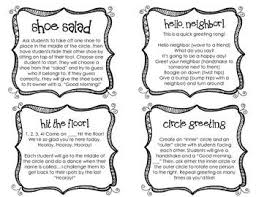 shoe salad
Ask students to take off one shoe to
place in the middle of the circle, then
have students fake their other shoe by
sitting on top of their foot. Choose one
student to start, they will choose a
shoe from the "salad" and try to guess
who it belongs to. If they guess
correctly, they will give the shoe back
to its owner with a, "Good morning!"
hello, neighbor!
This is a quick greeting song!
Hello neighbor (wave to a friend)
What do you say?
It's going to be a happy day!
Greet your neighbor (handshake)
Boogie on down (boogie)
Give a bump (bump hips)
And turn around
hit the floor!
1, 2, 3, 4! Come on
Hit the floor!
We're so glad you're here today.
Hooray, Hooray, Hooray!
Each student will go to the middle of the
circle and do a dance when their
name is called... I challenge them to
get back to their spot by the last
"Hooray!"
circle greeting
Create an "inner" circle and an
"outer" circle with students facing
each other. Students will give a
handshake and a "Good morning,
". Then, ask either the inner circle or
the outer circle to rotate one person
to the right. Repeat greeting as many
times as you'd like!